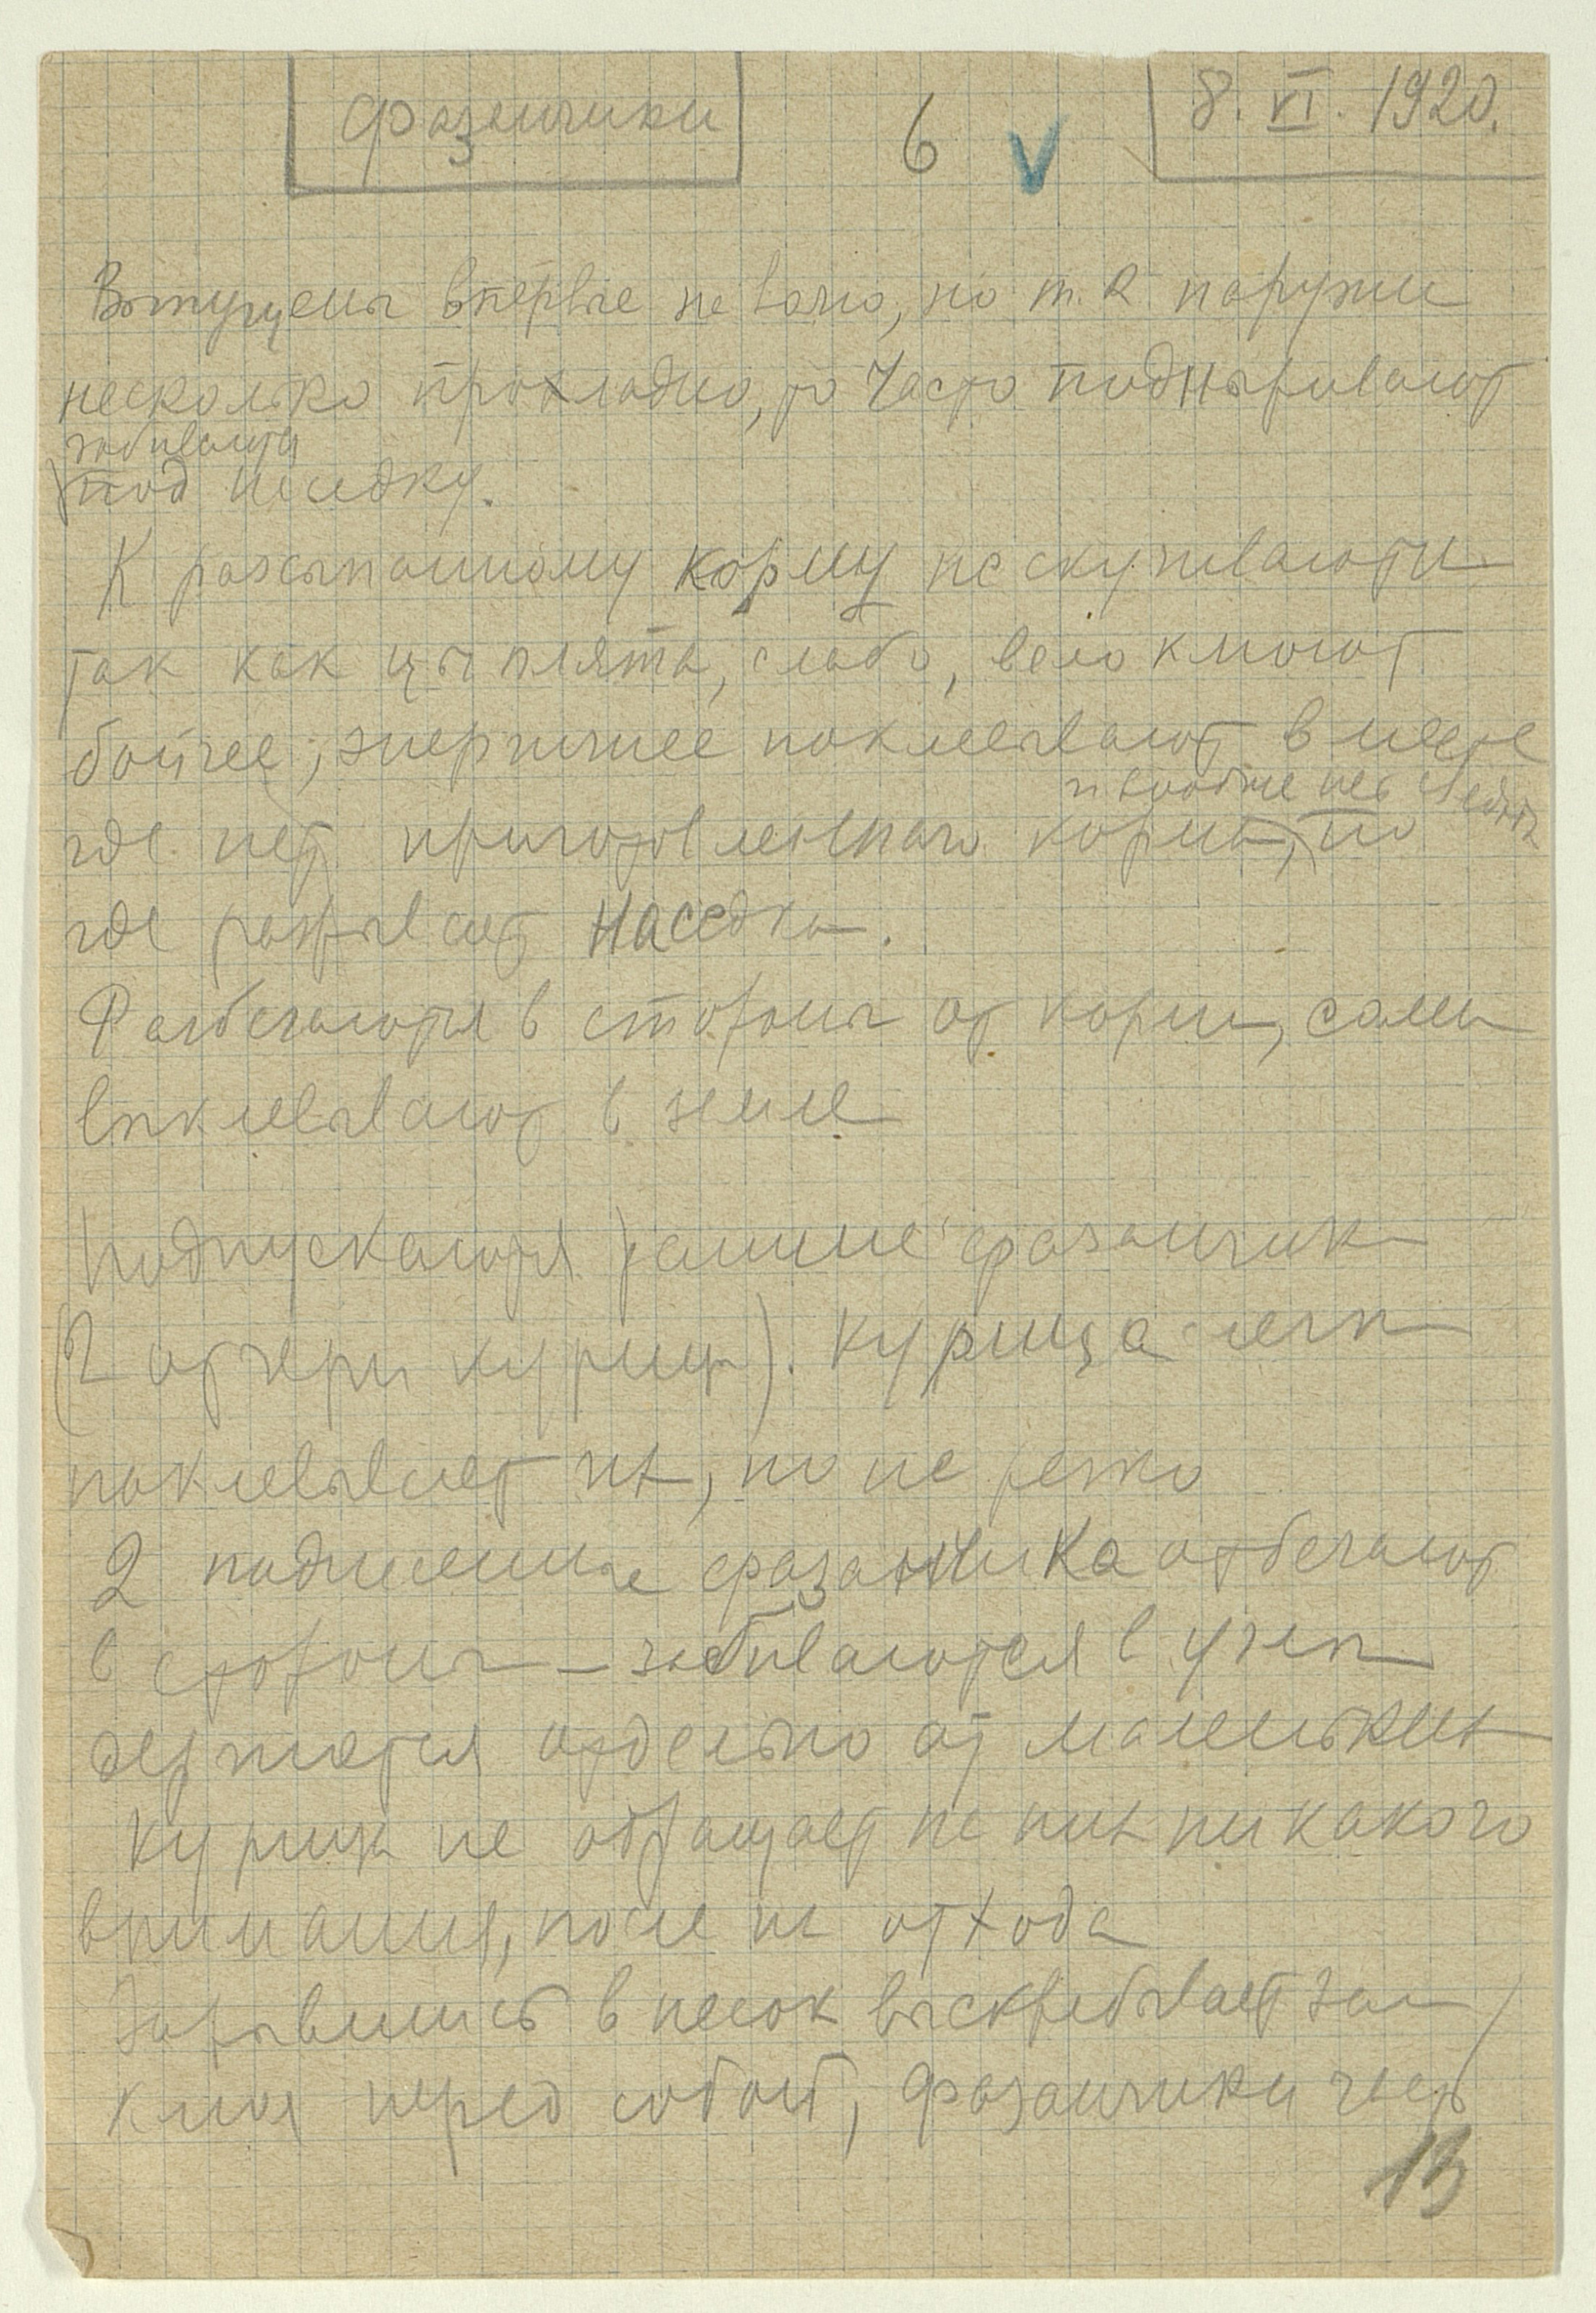 Фазанчики
6 V
8. VI. 1920.
Выпущены впервые на волю, но т. к наружи
несколько прохладно, то часто подныривают
забиваются
под наседку.
К рассыпанному корму не скучиваются
так как цыплята, слабо, вяло клюют
бойчее, энергичнее поклевывают в месте
и вообще не
где нет приготовленного корма, но
где разрывает наседка.
Разбегаются в стороны от корма, сами
выклевывают в земле
Подпускаются ранние фазанчики
(2 от черн курицы). Курица слегка
поклевывает их, но не резко
2 подмененные фазанчика отбегают
в стороны – забиваются в угол
держатся отдельно от маленьких
Курица не обращает на них никакого
внимания, после их отхода
Зарывшись в песок выскребывает
клюя перед собой, фазанчики часть
13